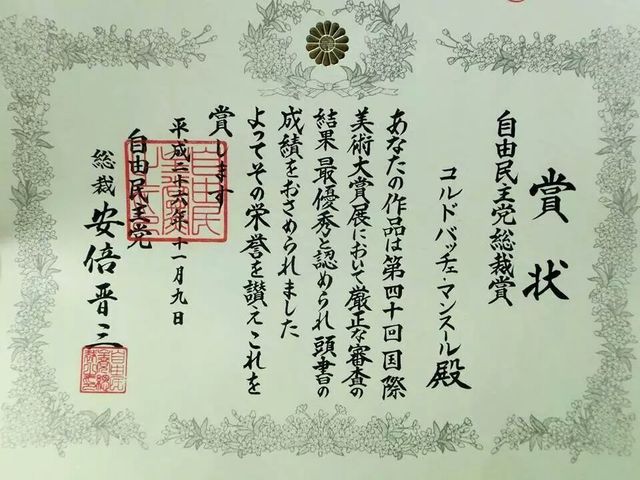 賞状
自由民主党総裁賞
コルドバッチェ・マンスール殿
あなたの作品は第四十回国際
美術大賞展において厳正な審査の
結果最優秀と認められ頭書の
成績をおさめられました
よってその栄誉を讃えこれを
賞します
平成二十六年十一月九日
自由民主党
総裁 安倍晋三